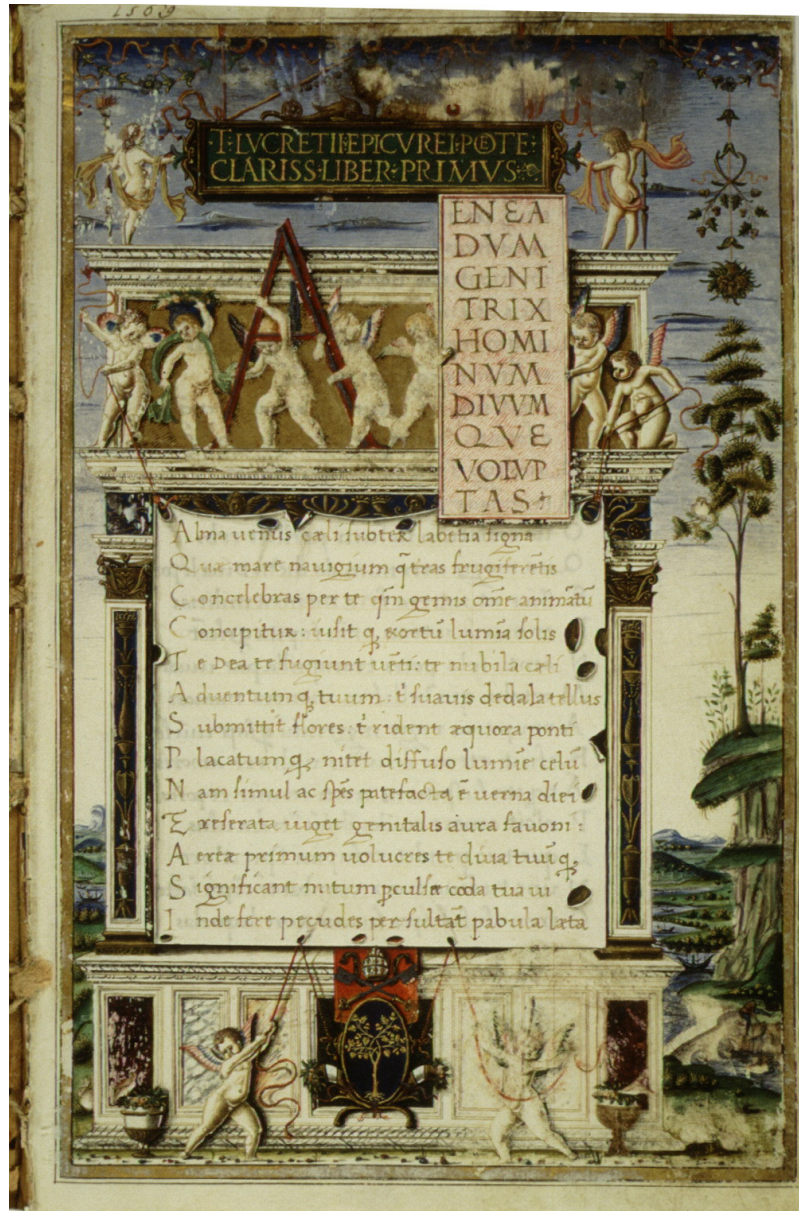 1509
·T·LVCRETII·EPICVREI·POETE·
CLARISS·LIBER·PRIMVS·
A
ENEA
DVM
GENI
TRIX
HOMI
NVM
DIVVM
QVE
VOLVP
TAS
Alma venus cæli subter labētia signa
Quæ mare navigium q̄ tras frugiferētis
Concelebras per te qm̄ genus om̄e animātū
Concipitur: uisit q exortū lumīa solis
Te Dea te fugiunt vēti: te nubila cæli
Aduentumq tuum: t̄ suavis dedala tellus
Submittit flores: t̄ rident æquora ponti
Placatumq nitet diffuso lumīe celū
Nam simul ac spēs patefacta ē verna diei
Et reserata viget genitalis aura favoni:
Aereæ primum volucres te diva tuūq
Significant initum ꝑculsæ corda tua vi
Inde fere pecudes per sultāt pabula læta